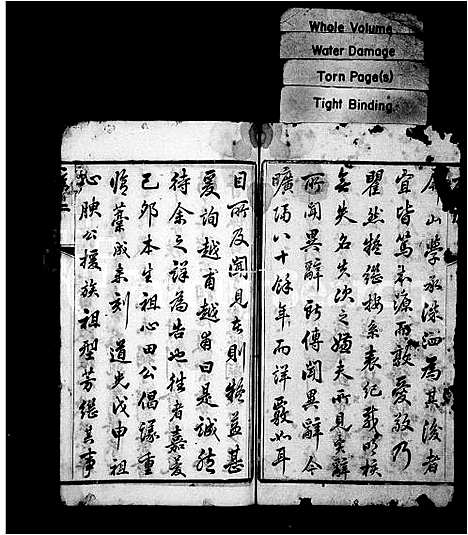 Whole Volume
Water Damage
Torn Page(s)
Tight Binding
金山學承洙泗為其後者
宜皆篤本源而敦愛敬乃
瞿然牲繼按系表紀載時核
無失名失次之嫌夫所見異辭
所聞異辭所傳聞異辭今
曠隔八十餘年而詳覈如耳
目所及聞見者則牲益甚
爰詢越甫越甫曰是誠然
待余之詳為告也往者嘉慶
己卯本生祖心田公倡議重
脩藁成未刻道光戊申祖
心腴公援族祖型芳繼其事